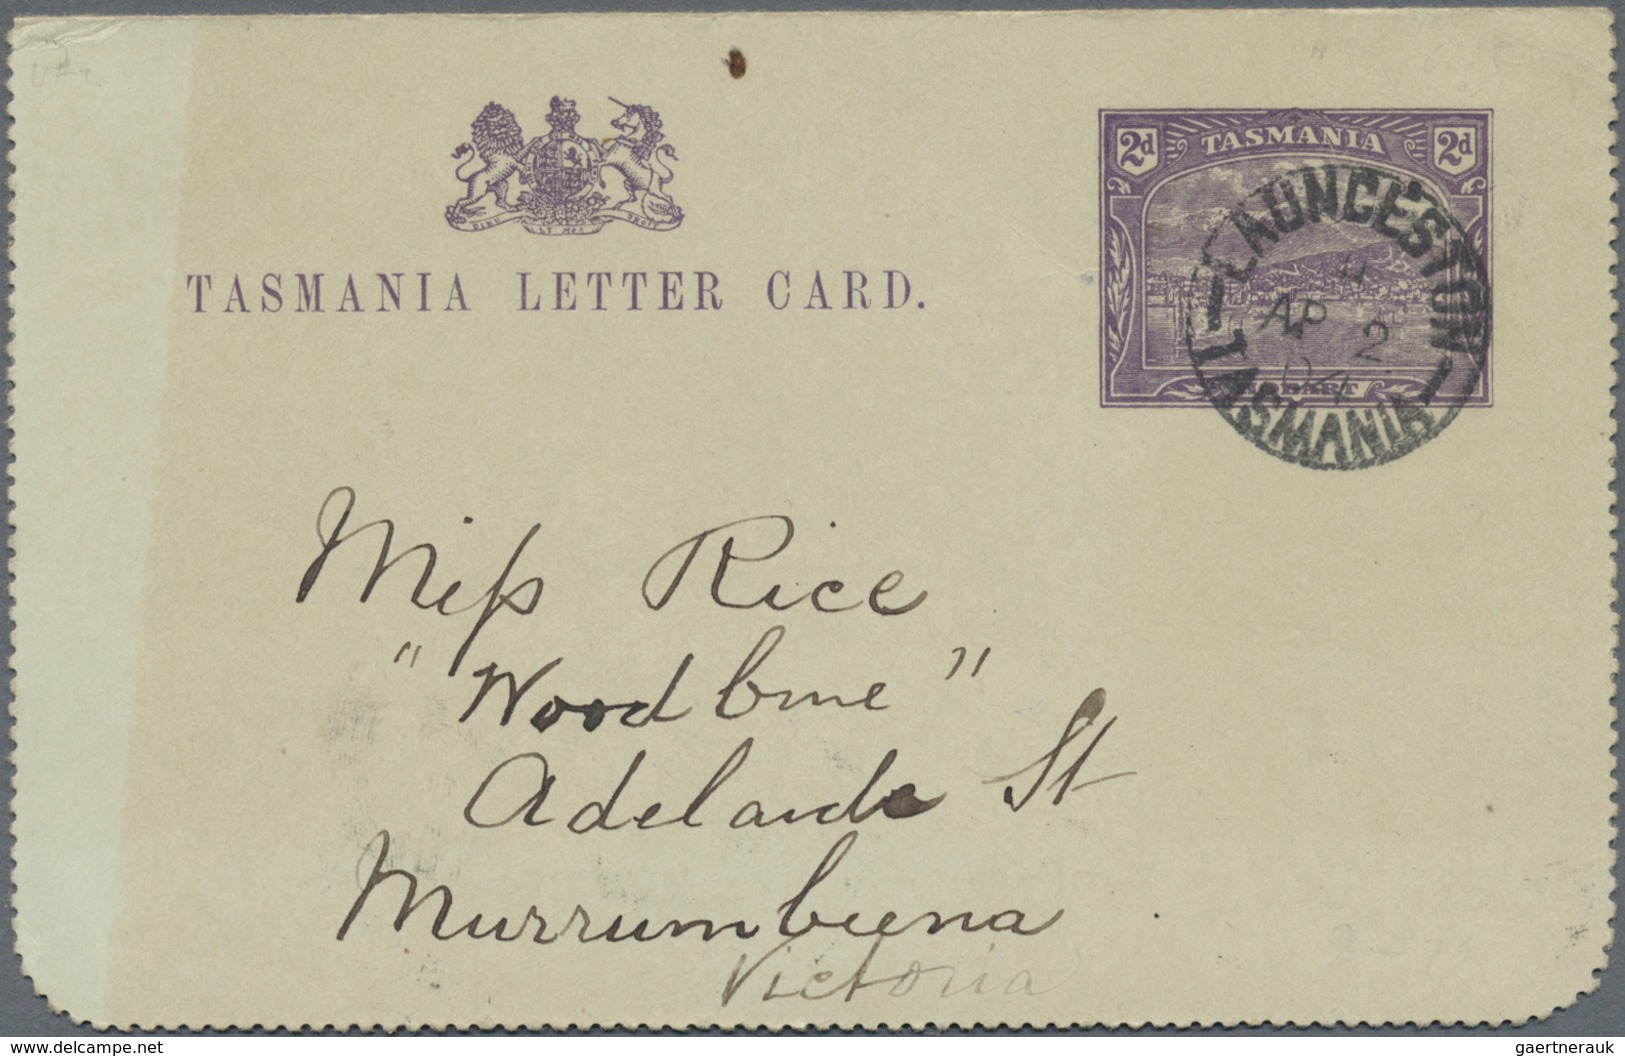 TASMANIA LETTER CARD.
DIEU ET MON DROIT
2d TASMANIA 2d
HOBART
LAUNCESTON
4
AP 2
04
TASMANIA
Miss Rice
"Woodbine"
Adelaide St
Murrumbeena
Victoria
www.delcampe.net
gaertnerauk